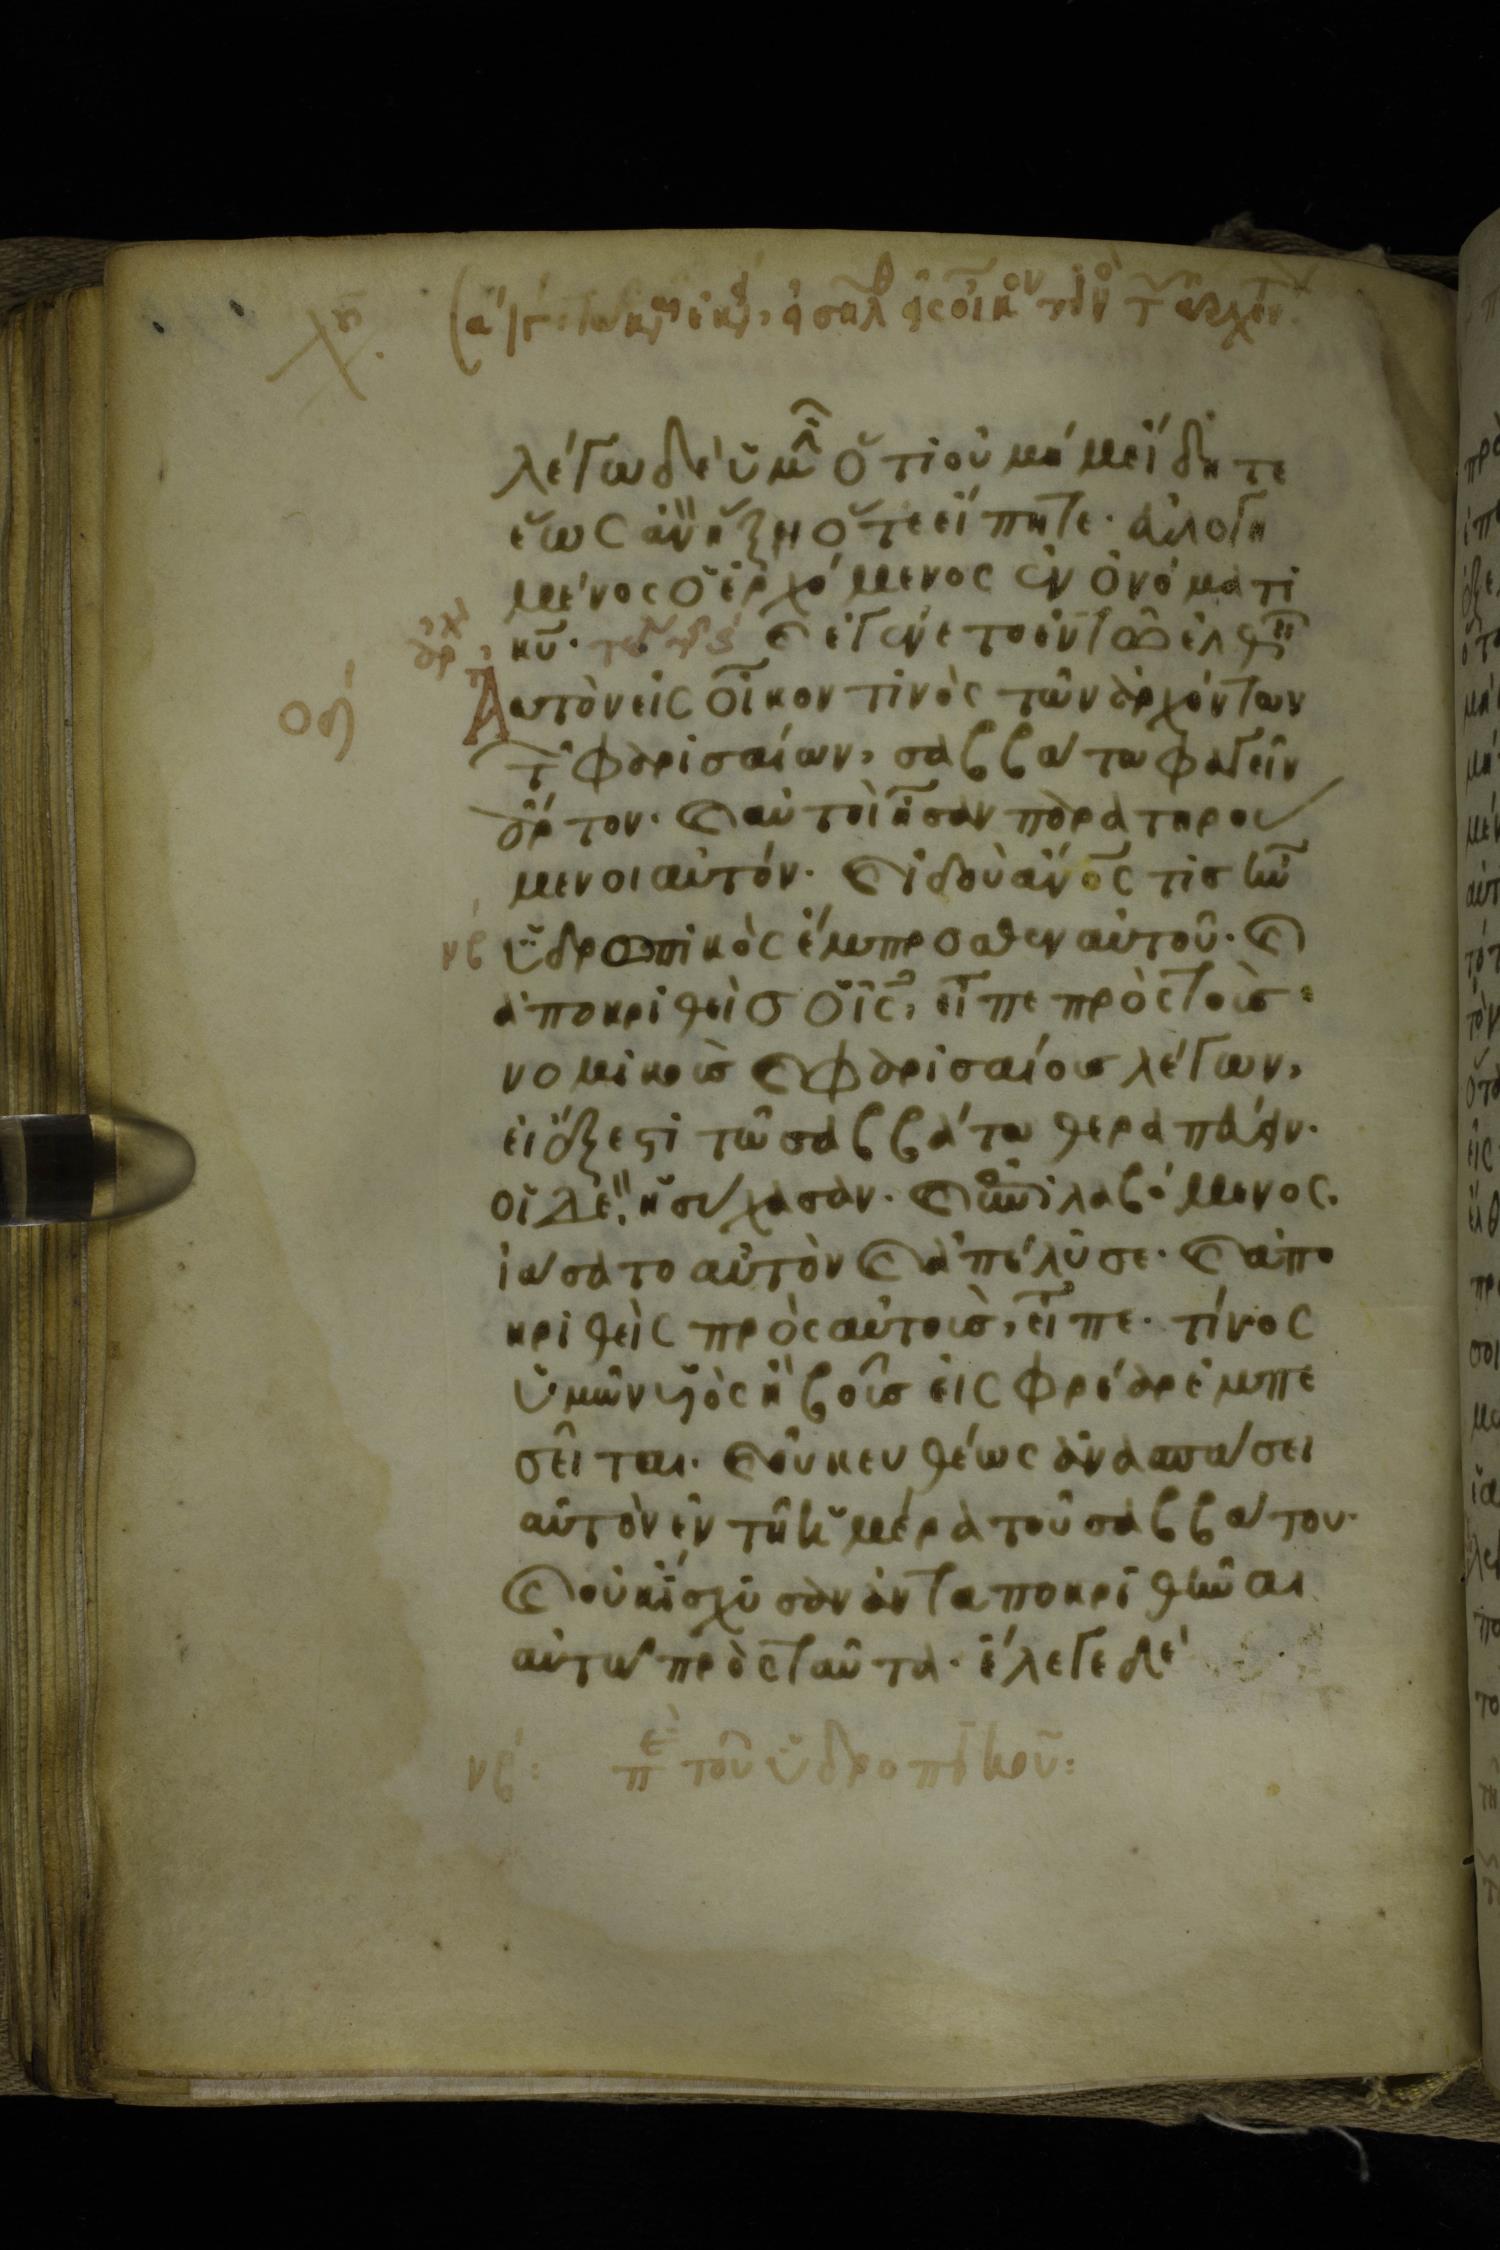 λέγω δὲ ὑμῖν ὅτι οὐ μή με ἴδητε
ἕως ἂν ἥξῃ ὅτε εἴπητε· εὐλογη
μένος ὁ ἐρχόμενος ἐν ὀνόματι
κυ̅· ἐγένετο ἐν τῶ ἐλθεῖν
αυτὸν εἰς οἶκον τινὸς τῶν ἀρχόντων
τῶν φαρισαίων, σαββάτω φαγεῖν
ἄρτον· καὶ αὐτοὶ ἦσαν παρατηρού
μενοι αὐτόν· καὶ ἰδοὺ ἄνο̅ς τις ἦν
ὑδρωπικὸς ἔμπροσθεν αὐτοῦ· καὶ
ἀποκριθεὶς ὁ ι̅ς, εἶπε πρὸς τοὺς
νομικοὺς καὶ φαρισαίους λέγων,
εἰ ἔξεστι τῶ σαββάτω θεραπεύειν·
οἱ δὲ, ἡσύχασαν· καὶ ἐπιλαβόμενος,
ἰάσατο αὐτὸν καὶ ἀπέλυσε· καὶ ἀπο
κριθεὶς πρὸς αὐτοὺς, εἶπε· τίνος
ὑμῶν υἱὸς ἢ βοῦς εἰς φρέαρ ἐμπε
σεῖται· καὶ οὐκ ευθέως ἀνασπάσει
αὐτὸν ἐν τῆ ἡμέρα τοῦ σαββάτου·
καὶ οὐκ ἴσχυσαν ἀνταποκριθῆναι
αὐτῶ πρὸς ταῦτα· ἔλεγε δὲ
νβ: πε τοῦ ὑδροπικοῦ: